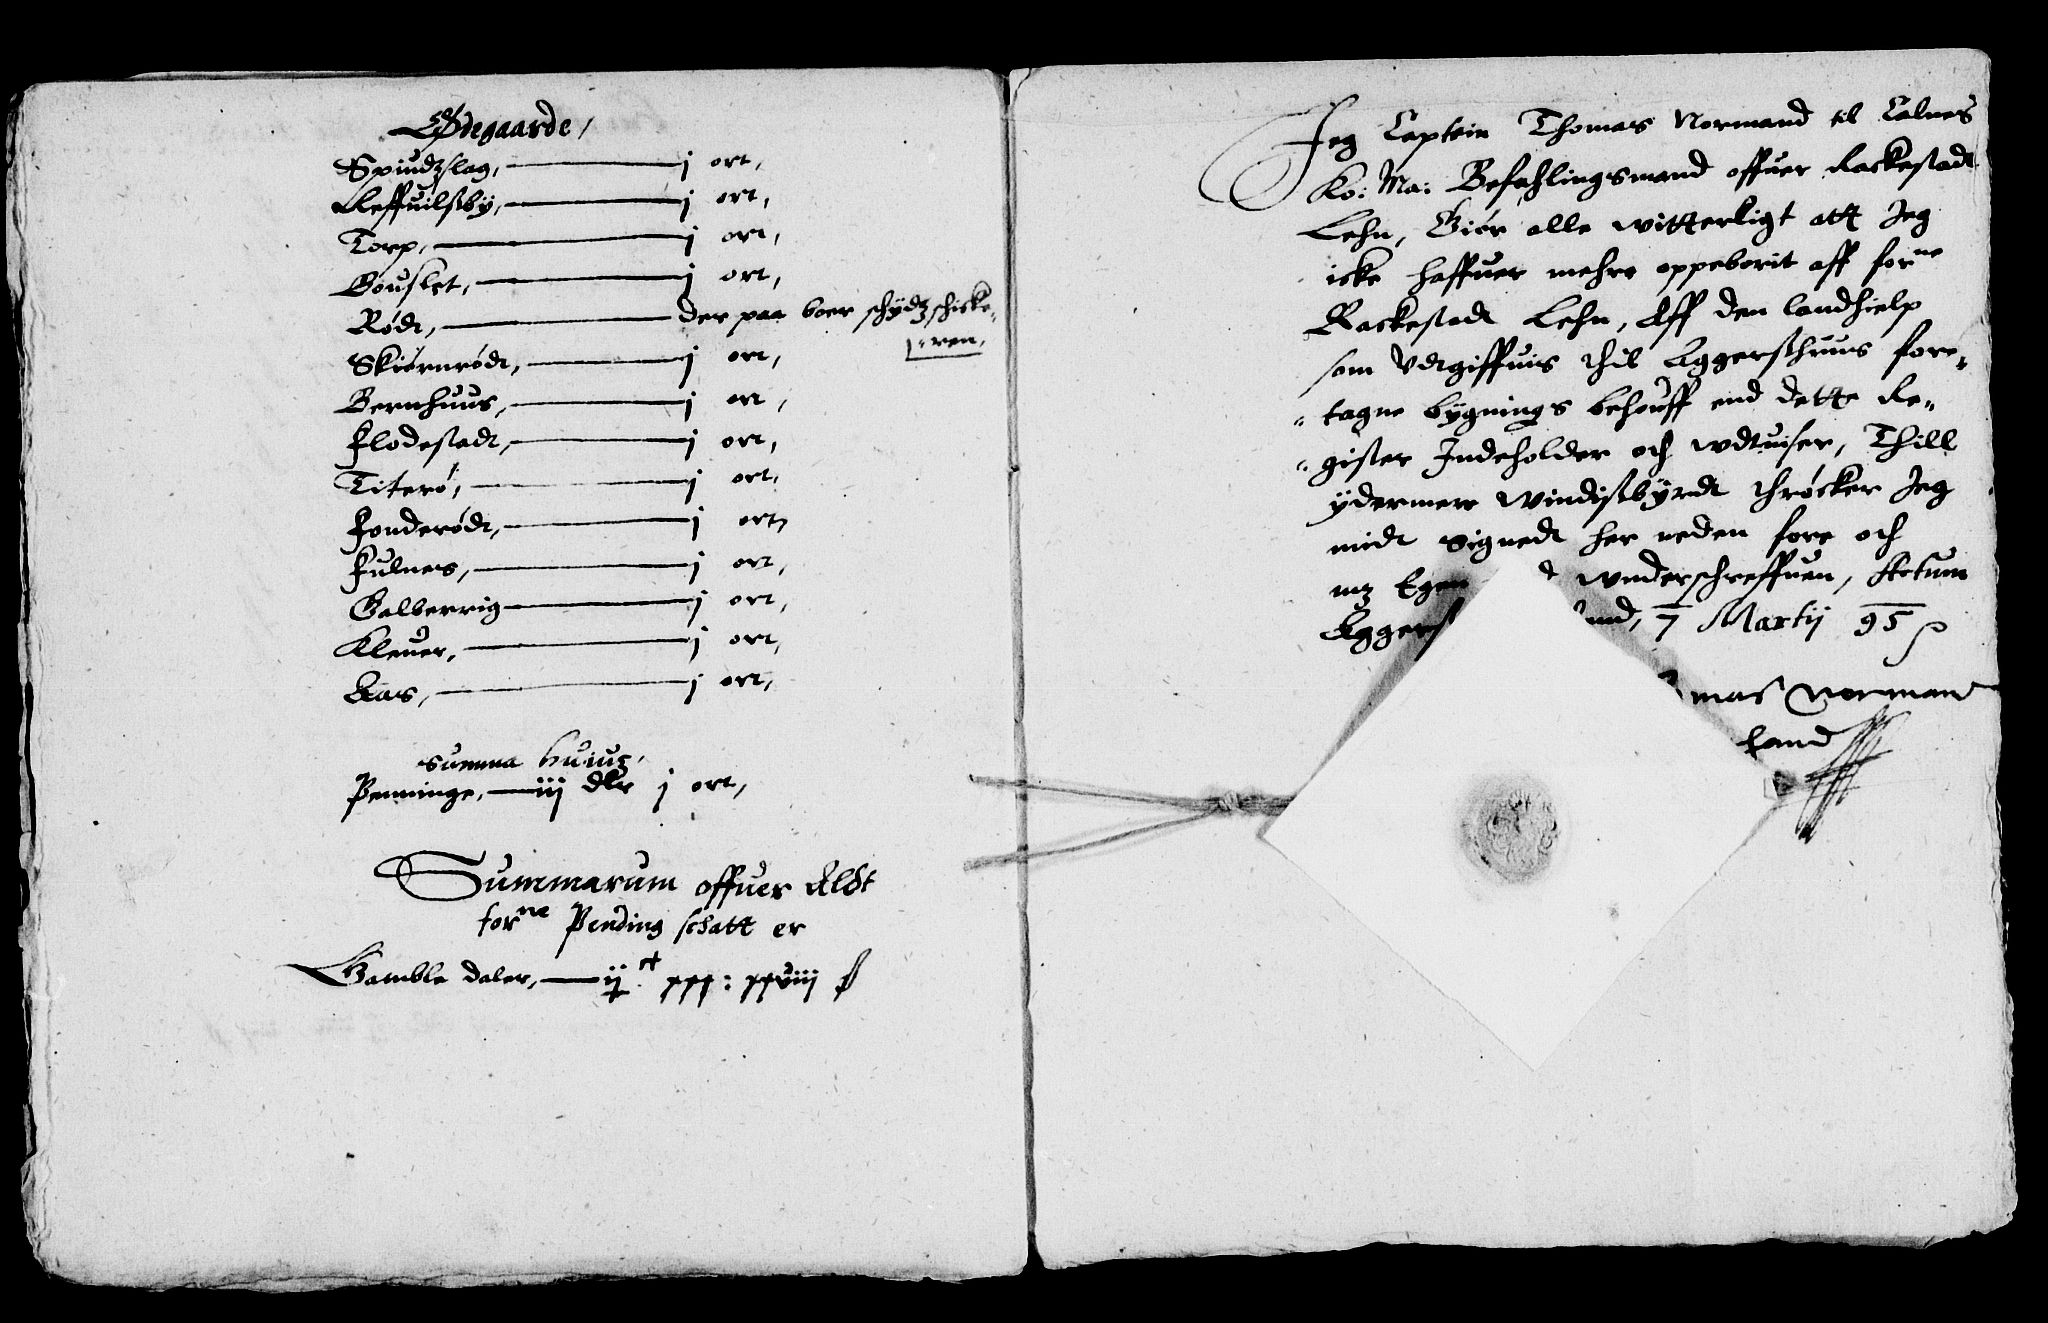 Ødegaarde,
Spiudzslag, j ort,
Reffuilsby, j ort,
Torp, j ort,
Gouslet, j ort,
Rødt, der paa boer schydz schicke-
-ren,
Skiørnrødt, j ort,
Bernhuus, j ort,
Flodestadt, j ort,
Titerø, j ort,
Fonderødt, j ort,
Fulnes, j ort,
Galberrig j ort,
Kleuer, j ort,
Aas, j ort,
Summa huiuz,
Penninge, iij dlr j ort,
Summarum offuer Aldt
forne Pending schatt er
Gamble daler, ij ct xxx: xxviij ß
Jeg Captein Thomas Normand til Calnes
Ko: Ma: Befahlingsmand offuer Rackestadt
Lehn, Giør alle witterligt att Jeg
icke haffuer mehre oppeborit aff forne
Rackestadt Lehn, Aff den landhielp
som Vdtgiffuis thil Aggershuus fore-
-tagne bygnings behouff end dette Re-
-gister Indeholder och wdtuiser, Thill
ydermere windisbyrdt thrøcker Jeg
midt Signedt her neden fore och
mz Egen wnderschreffuen, Actum
Aggers und, 7 Martij 95
mas Norman
hand